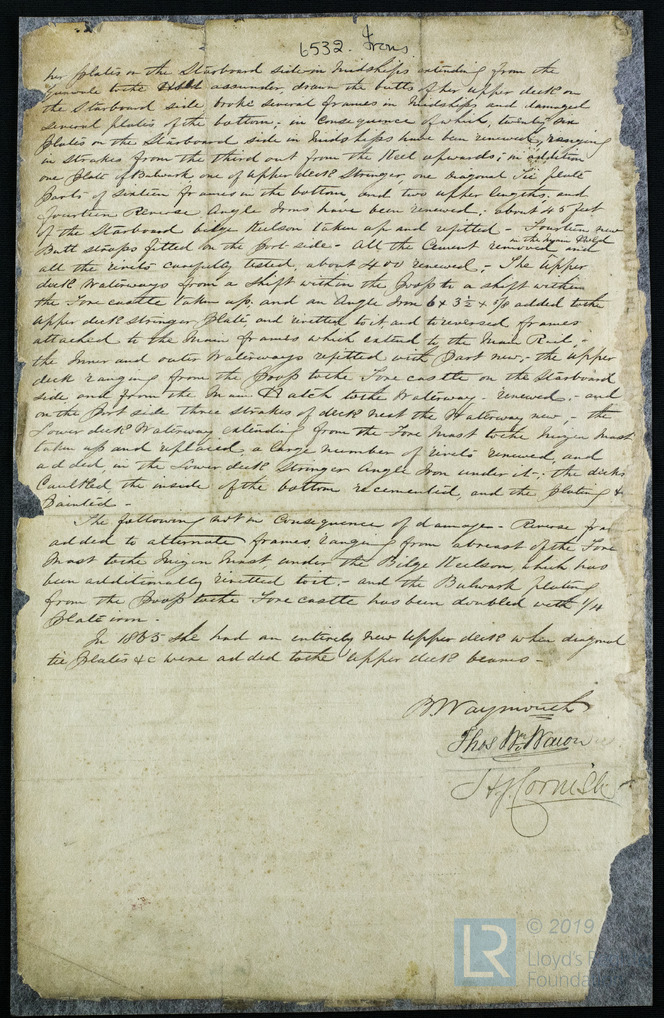 6532. Irons
her plates on the Starboard side in Midships extending from the
Gunwale to the Bilge assunder, drawn the butts of her upper deck on
the Starboard side broke several frames in Midships and damaged
several plates of the bottom; in consequence of which, twenty six
plates on the Starboard side in Midships have been renewed, ranging
in strakes from the third out from the Keel upwards; in addition
one plate of Bulwark one of upper deck Stringer, one diagonal Tie plate
parts of sixteen frames in the bottom, and two upper lengths, and
fourteen Reverse Angle Irons have been renewed; about 45 feet
of the Starboard bilge Keelson taken up and refitted - Fourteen new
Butt straps fitted on the port side - All the Cement removed and
in the
all the rivets carefully tested, about 400 renewed; - The upper
deck Waterways from a Shift within the Poop to a shift within
the Fore castle taken up, and an Angle Iron 6 x 3½ x ⅞ added to the
upper deck Stringer Plate and rivetted to it and to reversed frames
attached to the Main frames which extend to the Main Rail; -
the Inner and outer Waterways refitted with Part new; - the upper
deck ranging from the Poop to the Fore castle on the Starboard
side and from the Main Hatch to the Waterway - renewed; - and
on the Port side three strakes of deck next the Waterway new, - the
Lower deck Waterway extending from the Fore Mast to the Mizen Mast
taken up and replaced, a large number of rivets renewed, and
added, in the Lower deck Stringer Angle Iron under it; - the decks
Caulked the inside of the bottom recemented, and the plating &
Painted -
The following not in Consequence of damage - Reverse
added to alternate frames, ranging from abreast of the Fore
Mast to the Mizen Mast under the Bilge Keelson, which has
been additionally rivetted to it, - and the Bulwark plating
from the Poop to the Fore castle has been doubled with 1/4
Plate iron. -
In 1865 she had an entirely new upper deck when diagonal
tie plates &c were added to the upper deck beams -
B Waymouth
Thos Wm
J H J Cornish
LR
© 2019
Lloyd's
Foundation